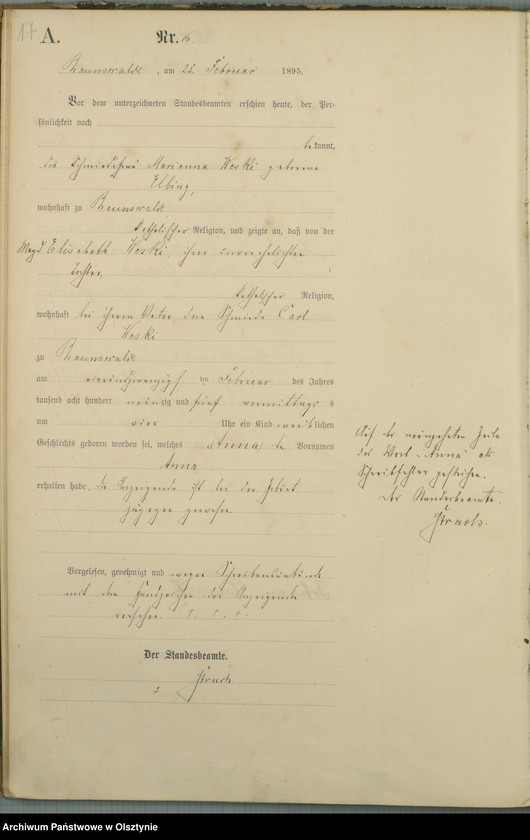 17
A. Nr. 16.
Braunswalde, am 25. Februar 1895.
Vor dem unterzeichneten Standesbeamten erschien heute, der Per-
sönlichkeit nach
bekannt,
die Schmiedefrau Marianna Weski geborene
Elbing,
wohnhaft zu Braunswalde
katholischer Religion, und zeigte an, daß von der
Magd Elisabeth Weski, ihrer unverehelichten
Tochter,
katholischer Religion,
wohnhaft bei ihrem Vater, dem Schmiede Carl
Weski
zu Braunswalde
am vierundzwanzigsten Februar des Jahres
tausend acht hundert neunzig und fünf vormittags
um vier Uhr ein Kind weiblichen
Geschlechts geboren worden sei, welches Anna Vornamen
Anna
erhalten habe. Die Anzeigende ist bei der Geburt
zugegen gewesen
Vorgelesen, genehmigt und wegen Schreibensunkunde
mit dem Handzeichen der Anzeigenden
versehen. † † †
Der Standesbeamte.
Auf der neunzehnten Zeile
das Wort "Anna" als
Schreibfehler gestrichen.
Der Standesbeamte.
Archiwum Państwowe w Olsztynie